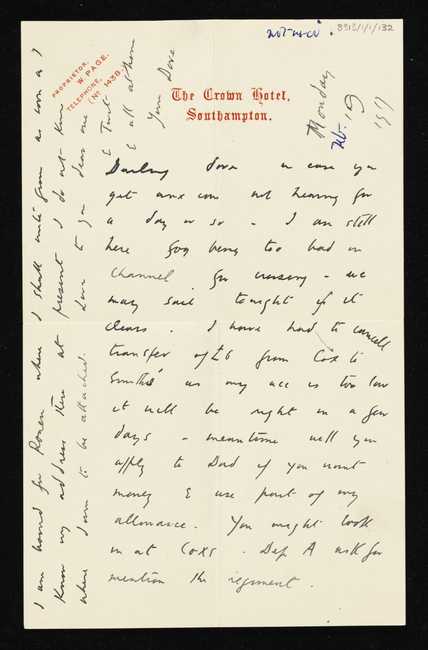 8313/1/1/132
PROPRIETOR,
W. PAGE.
TELEPHONE,
(No 1438.
The Crown Hotel,
Southampton.
Monday
Feb. 19
1917
Darling dove in case you
get anxious not hearing for
a day or so - I am still
here fog being too bad in
Channel for crossing - we
may sail tonight if it
clears. I have had to cancell
transfer of £6 from Cox to
Smiths as my acc is too low
it will be right in a few
days - meantime will you
apply to Dad if you want
money & use part of my
allowance. You might look
in at Coxs. Dep A ask for
mention the regiment.
I am bound for Rouen where I shall write from as soon as I
know my address there at present I do not know
where I am to be attached. Love to you dear one
&
& all at home
Your Dove